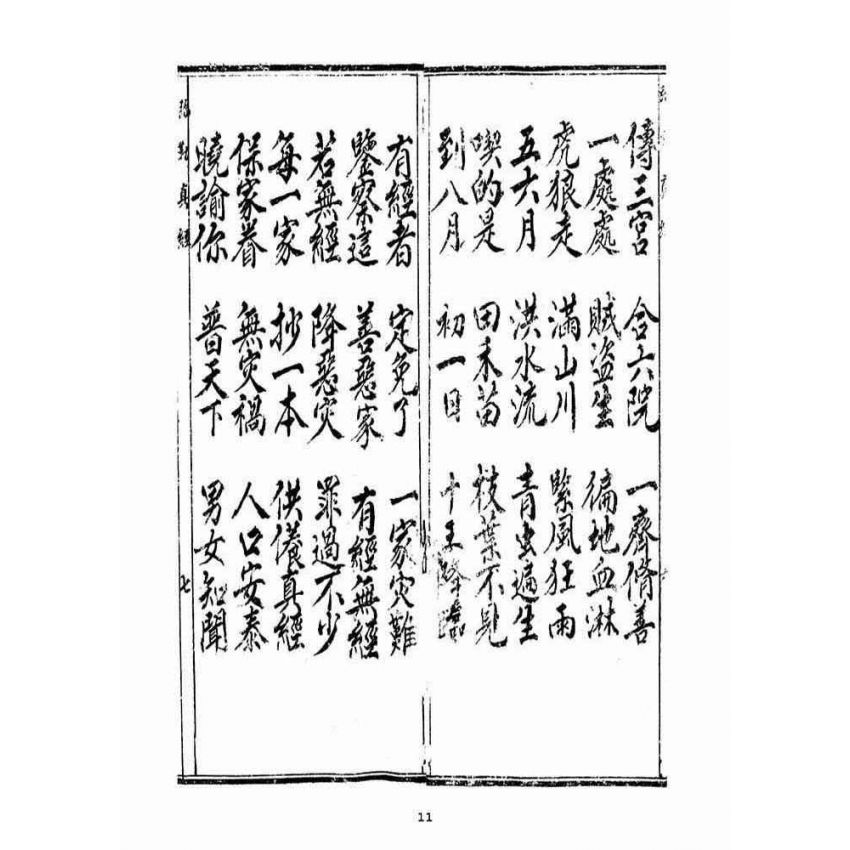 傳三宮 合六院 一齊脩善
一處處 賊盜生 徧地血淋
虎狼走 滿山川 緊風狂雨
五六月 洪水流 青虫遍生
喫的是 田禾苗 枝葉不見
到八月 初一日 十王降臨
有經者 定免了 一家灾難
鑒察這 善惡家 有經無經
若無經 降惡灾 罪過不少
每一家 抄一本 供養真經
保家眷 無灾禍 人口安泰
曉諭你 普天下 男女知聞
真經
七
11